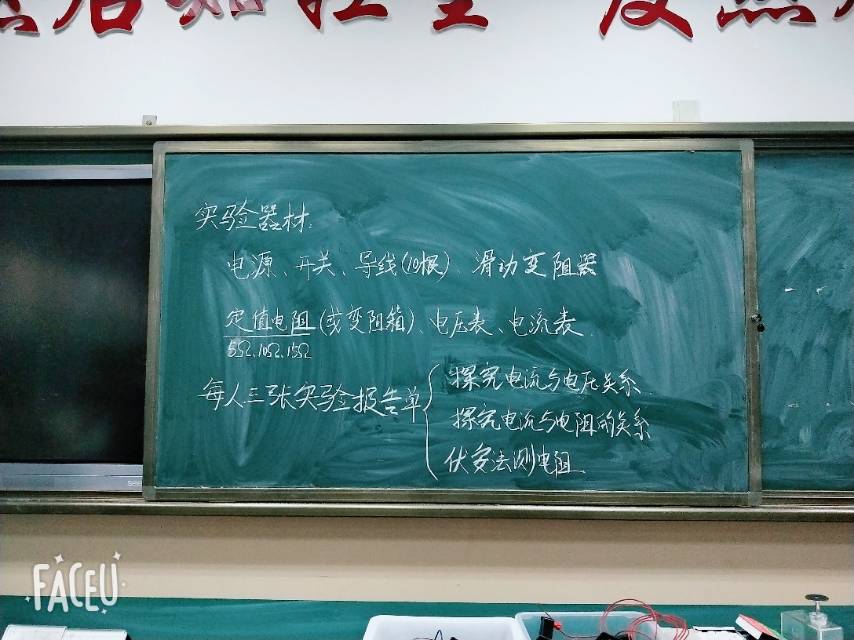 实验器材:
电源、开关、导线(10根)、滑动变阻器
定值电阻(或变阻箱)、电压表、电流表
5Ω、10Ω、15Ω
每人三张实验报告单
探究电流与电压关系
探究电流与电阻的关系
伏安法测电阻
FACEU